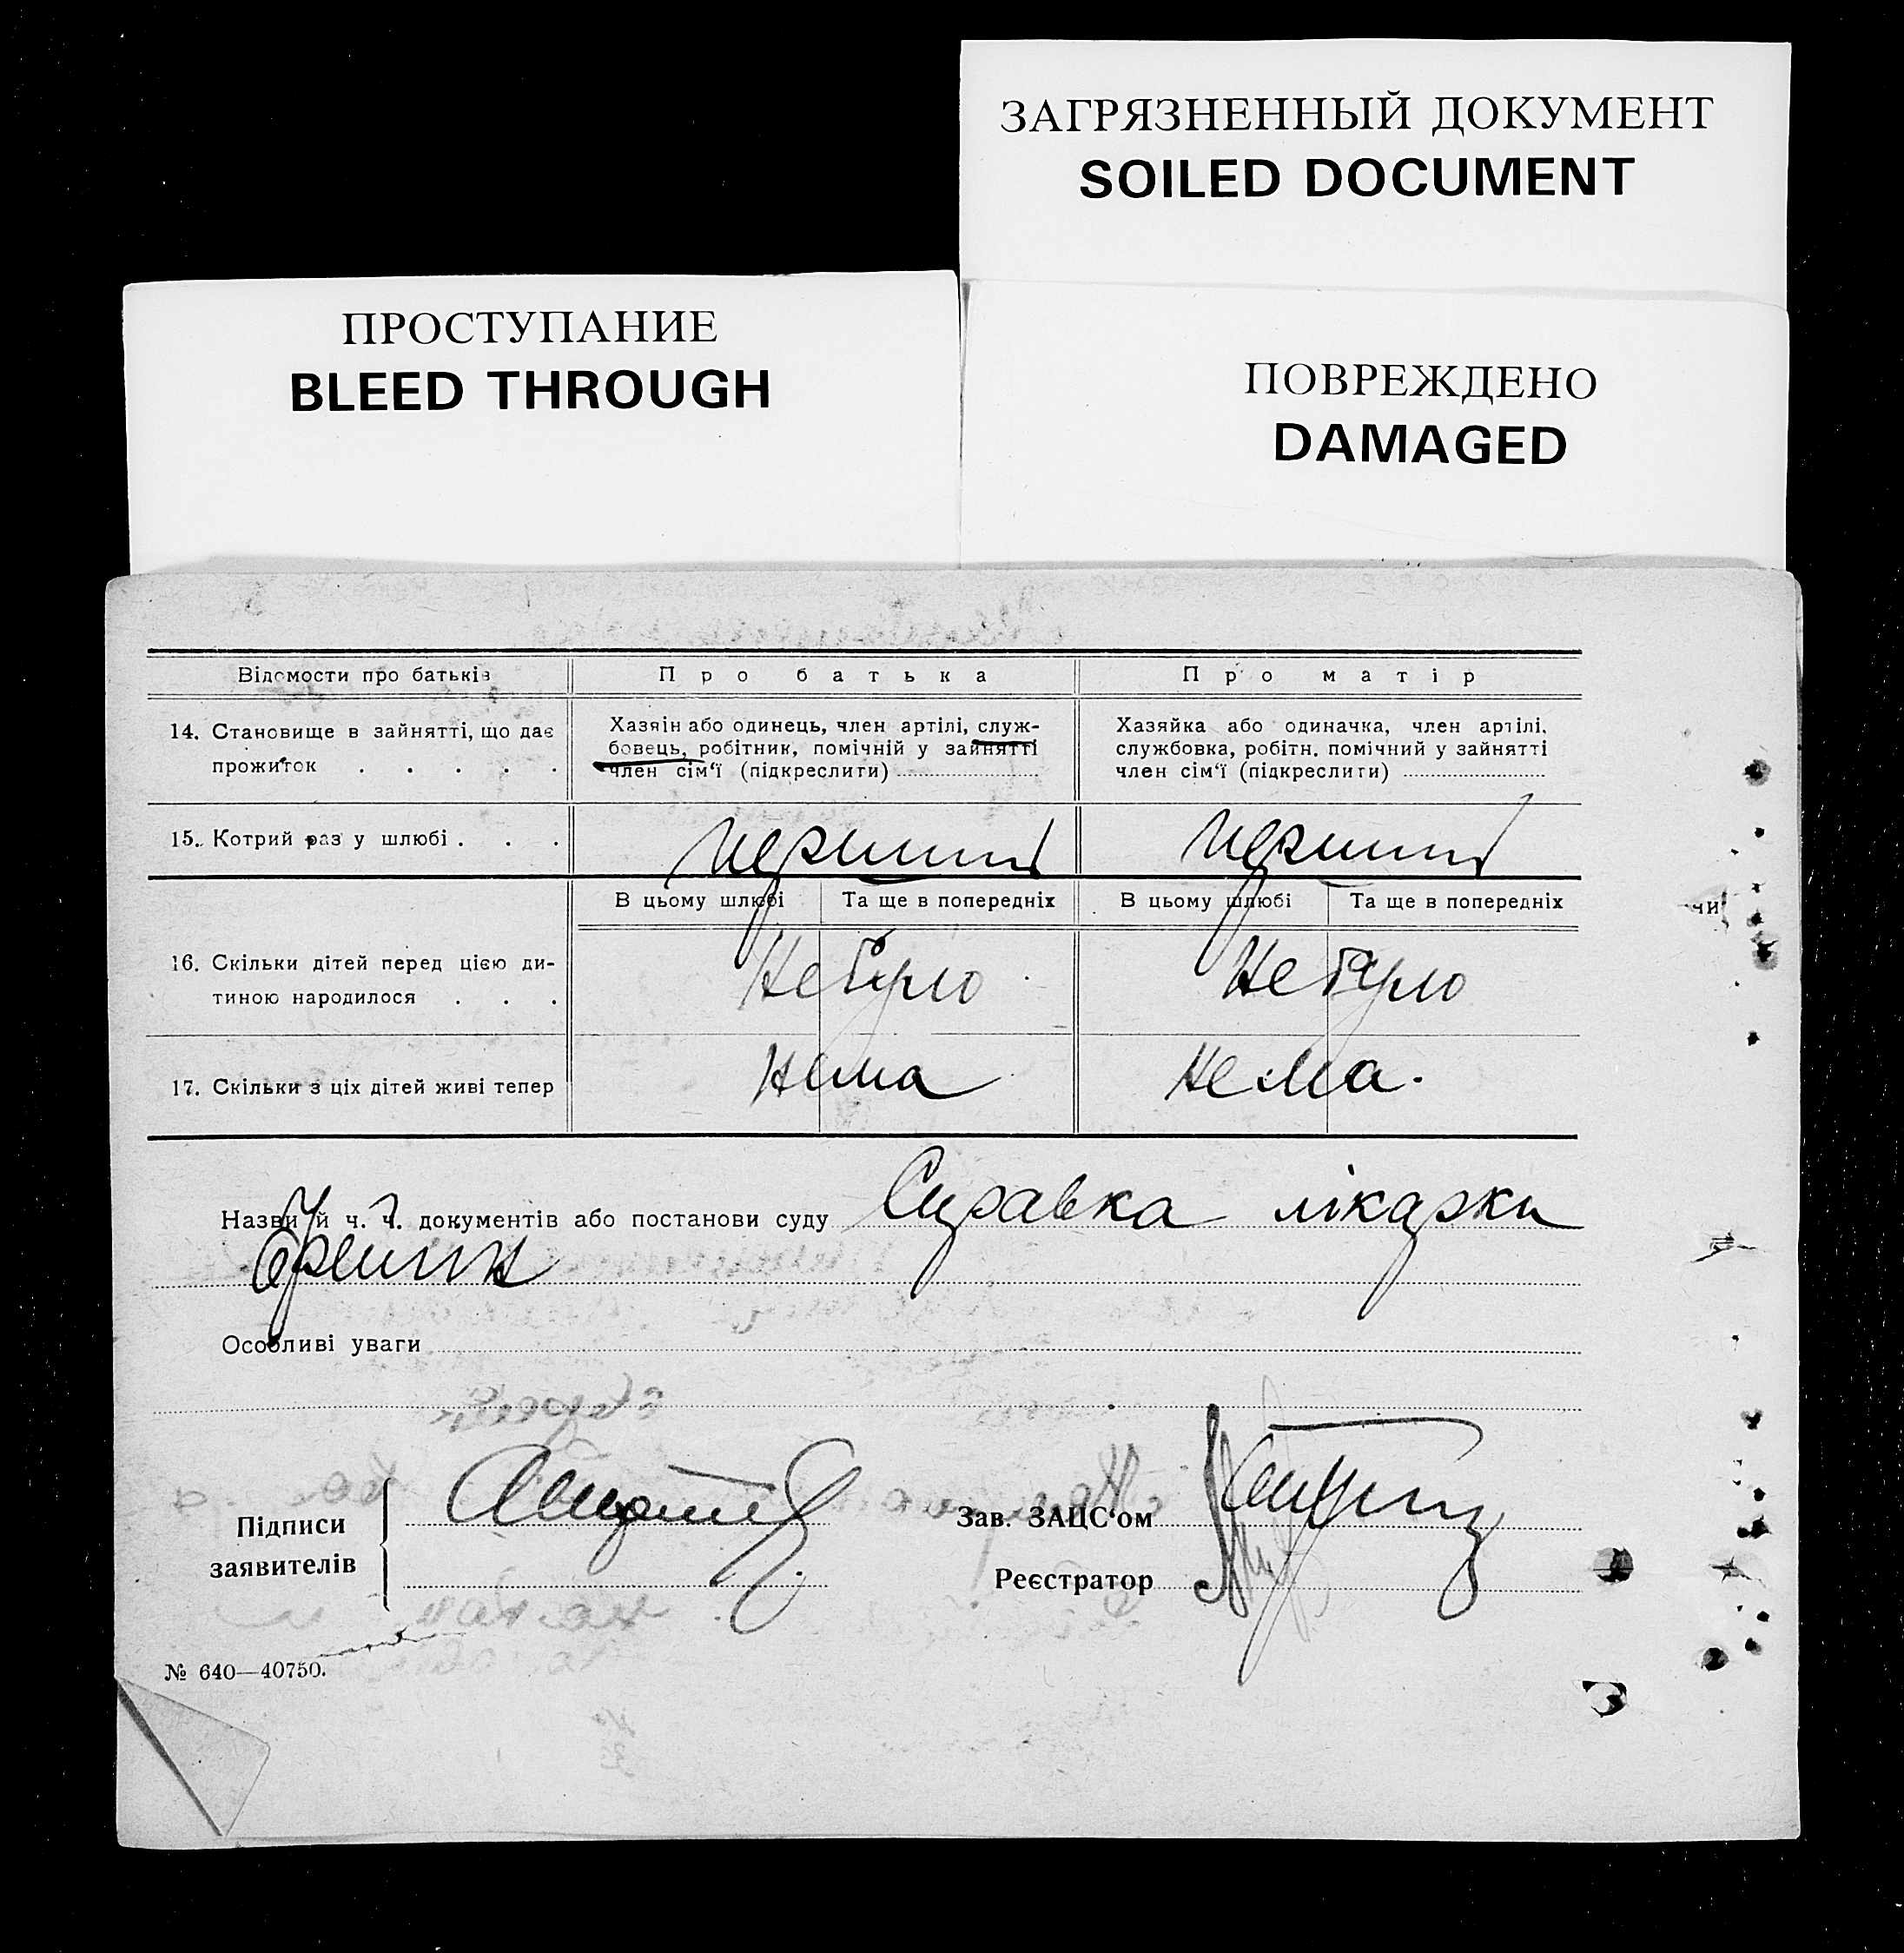 ЗАГРЯЗНЕННЫЙ ДОКУМЕНТ
SOILED DOCUMENT
ПРОСТУПАНИЕ
BLEED THROUGH
ПОВРЕЖДЕНО
DAMAGED
Відомости про батьків
Про батька
Про матір
14. Становище в зайнятті, що дає
прожиток . . . . .
Хазяін або одинець, член артілі, служ-
бовець, робітник, помічній у зайнятті
член сім'ї (підкреслити)
Хазяйка або одиначка, член артілі,
службовка, робітн. помічний у зайнятті
член сім'ї (підкреслити)
15. Котрий раз у шлюбі . . .
перший
перший
В цьому шлюбі
Та ще в попередніх
В цьому шлюбі
Та ще в попередніх
16. Скільки дітей перед цією ди-
тиною народилося . . .
Не було
Не було
17. Скільки з ціх дітей живі тепер
Нема
Нема.
Назви й ч. ч. документів або постанови суду Справка лікарки
Особливі уваги
Підписи
заявителів
Зав. ЗАЦС'ом
Реєстратор
№ 640—40750.
чи